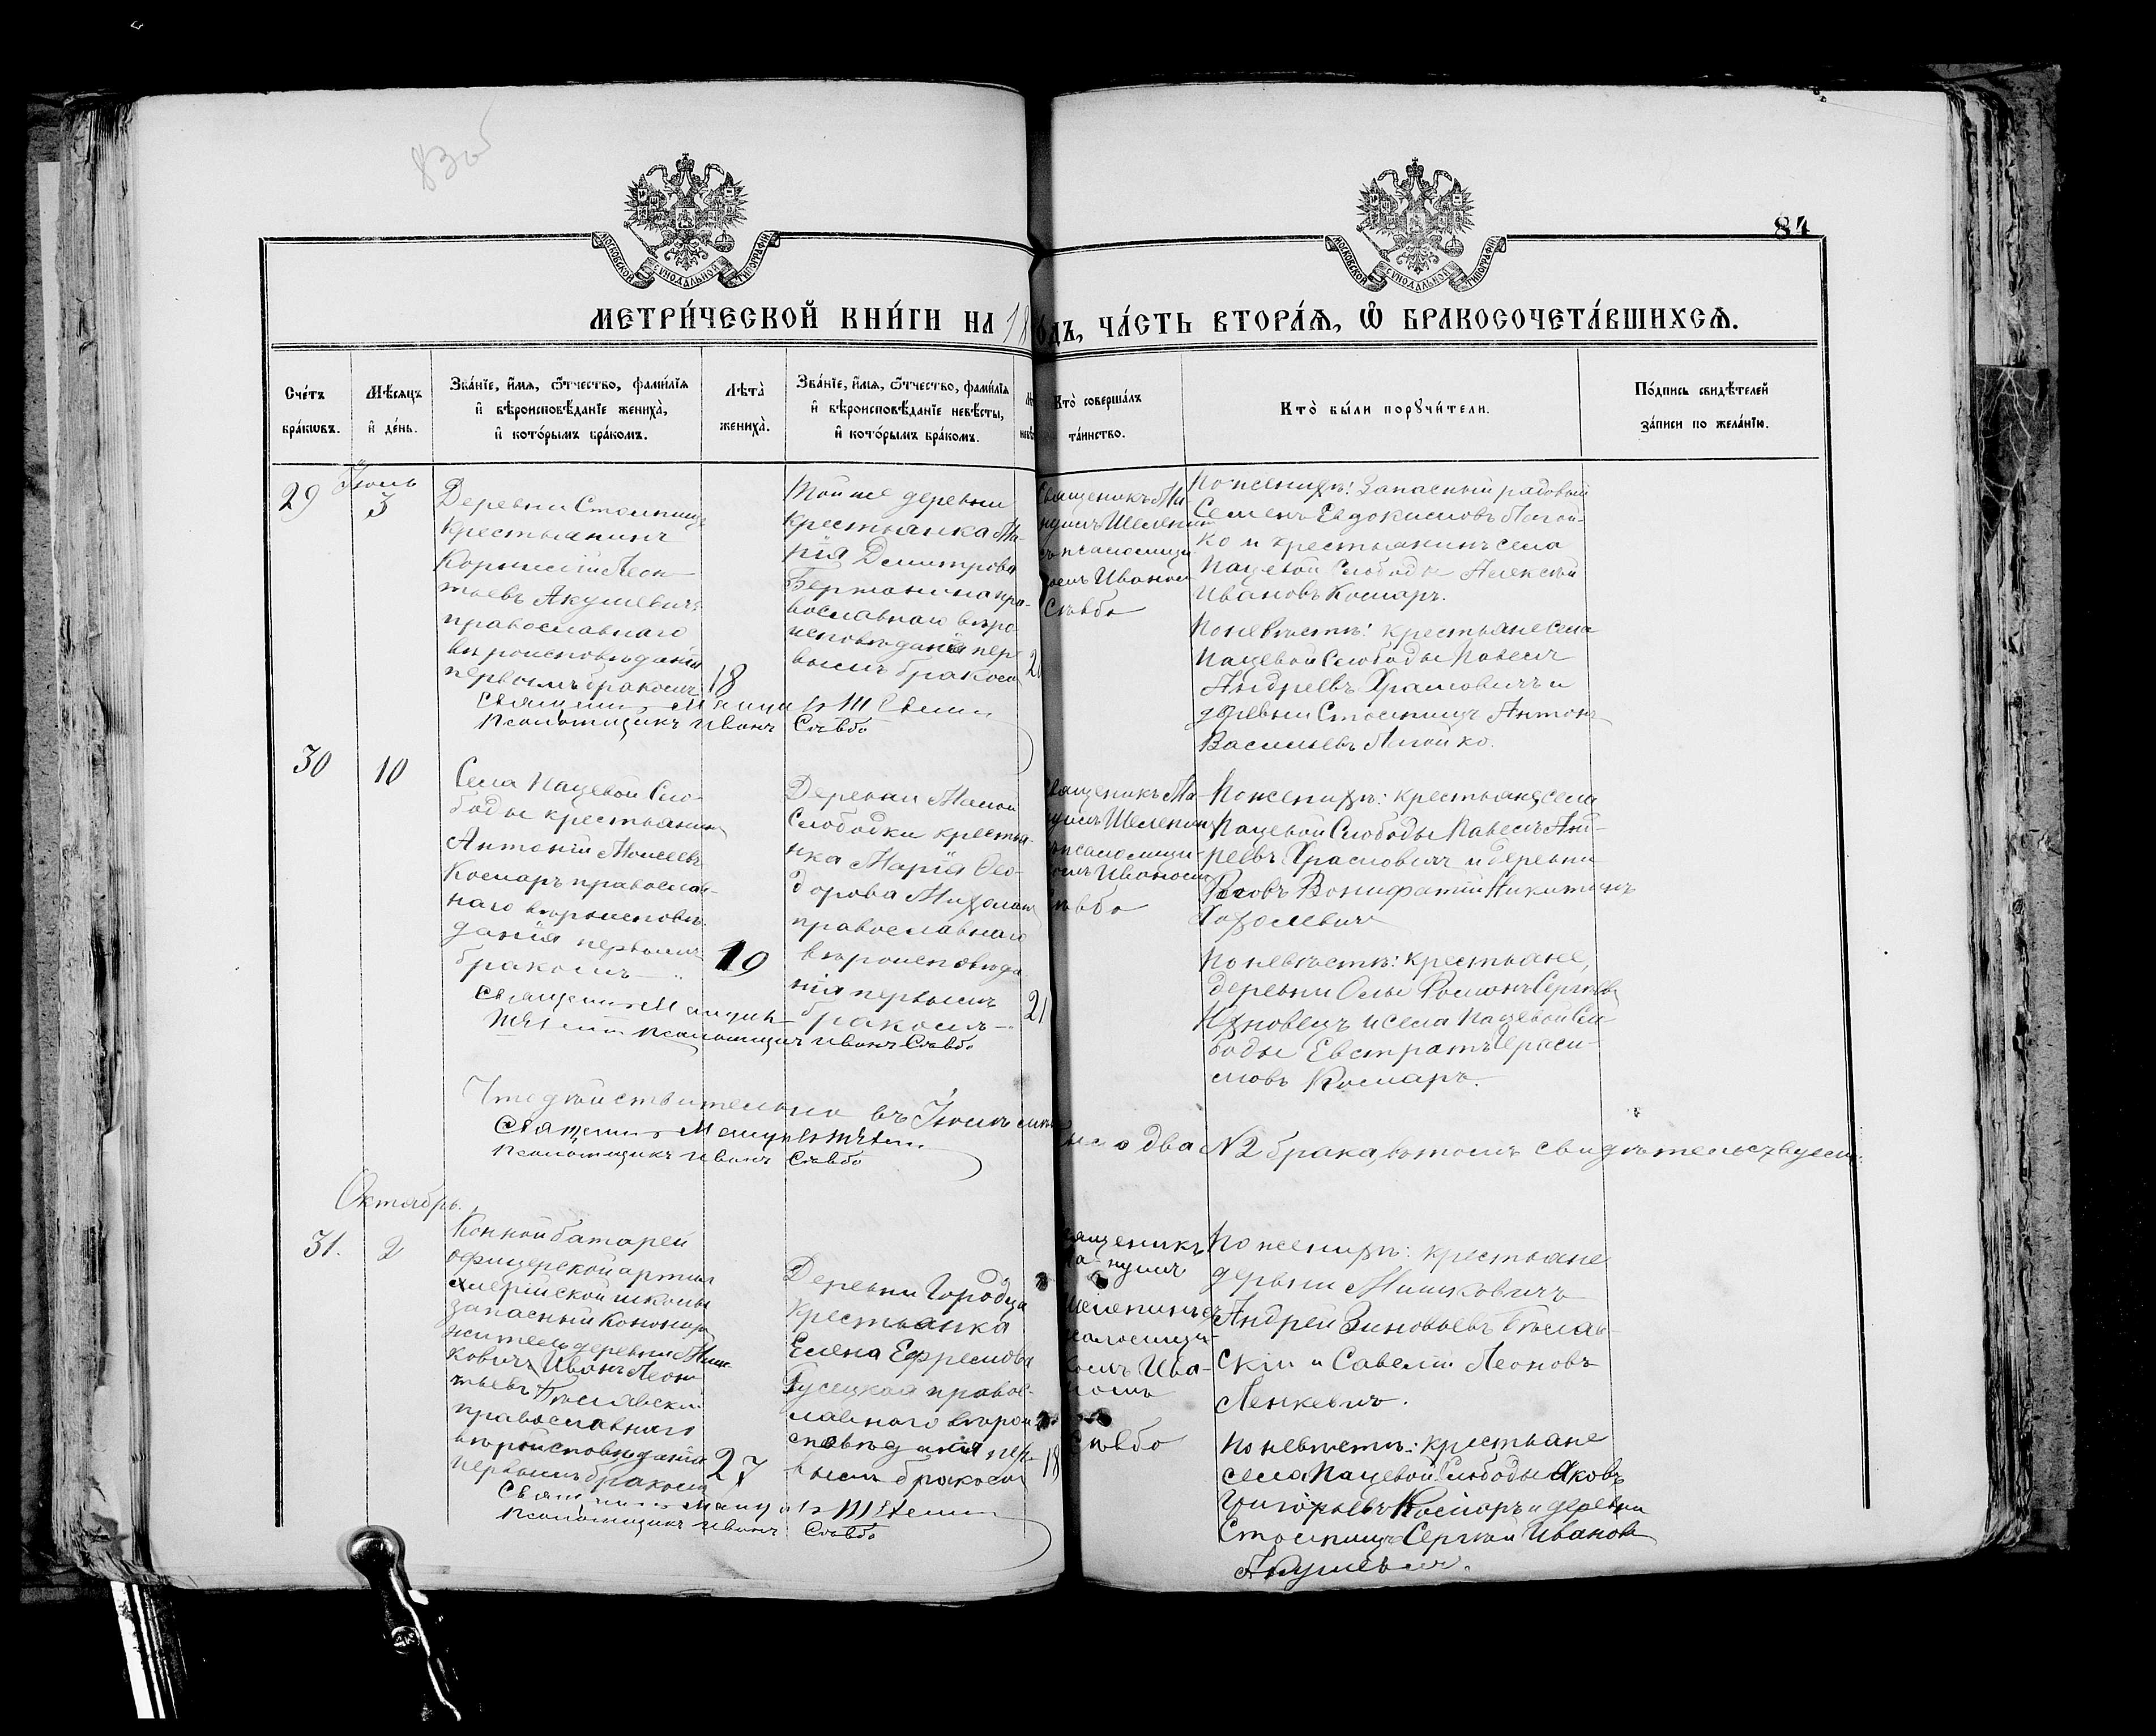 83об
84
МОСКОВСКОЙ СѴНОДАЛЬНОЙ ТИПОГРАФІИ
МОСКОВСКОЙ СѴНОДАЛЬНОЙ ТИПОГРАФІИ
МЕТРИ́ЧЕСКОЙ КНИ́ГИ НА 18
ОДЪ, ЧА́СТЬ ВТОРА́Ѧ, Ѿ БРАКОСОЧЕТА́ВШИХСѦ.
Сче́тъ
бра́кѡвъ.
Мѣ́сяцъ
и҆ де́нь.
Зва́нїе, и҆́мя, ѻ҆́тчество, фами́лїя
и҆ вѣроисповѣ́данїе жениха̀,
и҆ кото́рымъ бра́комъ.
Лѣта̀
жениха̀.
Зва́нїе, и҆́мя, ѻ҆́тчество, фами́лїя
и҆ вѣроисповѣ́данїе невѣ́сты,
и҆ кото́рымъ бра́комъ.
Кто̀ соверша́лъ
та́инство.
Кто̀ бы́ли порꙋчи́тели.
По́дпись свидѣ́телей
за́писи по жела́нїю.
29
Іюль
3
Деревни Стольниц
крестьянинъ
Корнилій Леон-
тьевъ Акулевичъ
православнаго
вѣроисповѣданія
первымъ бракомъ
18
Той же деревни
крестьянка Ма-
рія Димитрова
православнаго вѣро-
исповѣданія пер-
вымъ бракомъ
2
Священикъ Ма-
нуилъ Шелепин
съ псаломщи-
комъ Иваном
Съвбо
По женихѣ: Запасный рядовый
Семенъ Евдокимовъ Лагой-
ко и крестьянинъ села
Пацевой Слободы Алексѣй
Ивановъ Комаръ.
По невѣстѣ: крестьяне села
Пацевой Слободы Павелъ
Андреевъ Храмовичъ и
деревни Стольницъ Антонъ
Васильевъ Лагойко.
Псаломщикъ Иванъ Съвбо
30
10
Села Пацевой Сло-
боды крестьянинъ
Антоній Моисеевъ
Комаръ православ-
наго вѣроисповѣ-
данія первымъ
бракомъ
19
Деревни Малой
Слободки крестья-
нка Марія Ѳео-
дорова
православнаго
вѣроисповѣда
нія первымъ
бракомъ
21
Священикъ Ма-
нуилъ Шелепин
псаломщи-
комъ Иваномъ
Съвбо
По женихѣ: крестьяне села
Пацевой Слободы Павелъ Анд-
реевъ Храмовичъ и деревни
Вонифатій Никитинъ
По невѣстѣ: крестьяне,
деревни Ольы Романъ Сергѣевъ
и села Пацевой Сло
боды Евстратъ Гераси-
мовъ Комаръ.
псаломщикъ Иванъ Съвбо
Что дѣйствительно въ Іюлѣ
два №2 брака, въ томъ свидѣтельствуемъ:
Псаломщикъ Иванъ Съвбо
Октябрь.
31.
2
Конной батареи
офицерской артил
лерійской школы
запасный Канониръ
житель деревни Миш
ковичъ Иванъ Леон
тьевъ
православнаго
вѣроисповѣданія
первымъ бракомъ
27
Деревни Городца
крестьянка
Елена Ефремова
Гусецкая правос-
лавнаго вѣрои
сповѣданія пер-
вымъ бракомъ
18
Священикъ
Ма-нуилъ
Шелепинъ съ
псаломщи-
комъ Ива-
номъ
Съвбо
По женихѣ: крестьяне
деревни Мишковичъ
Андрей Зиновьевъ Бѣслав-
скій и Савелій Леоновъ
Ленкевичъ.
По невѣстѣ: крестьяне
села Пацевой Слободы Яковъ
Григорьевъ Комаръ и деревни
Стольницъ Сергѣй Ивановъ
Акулевичъ.
Псаломщикъ Иванъ Съвбо